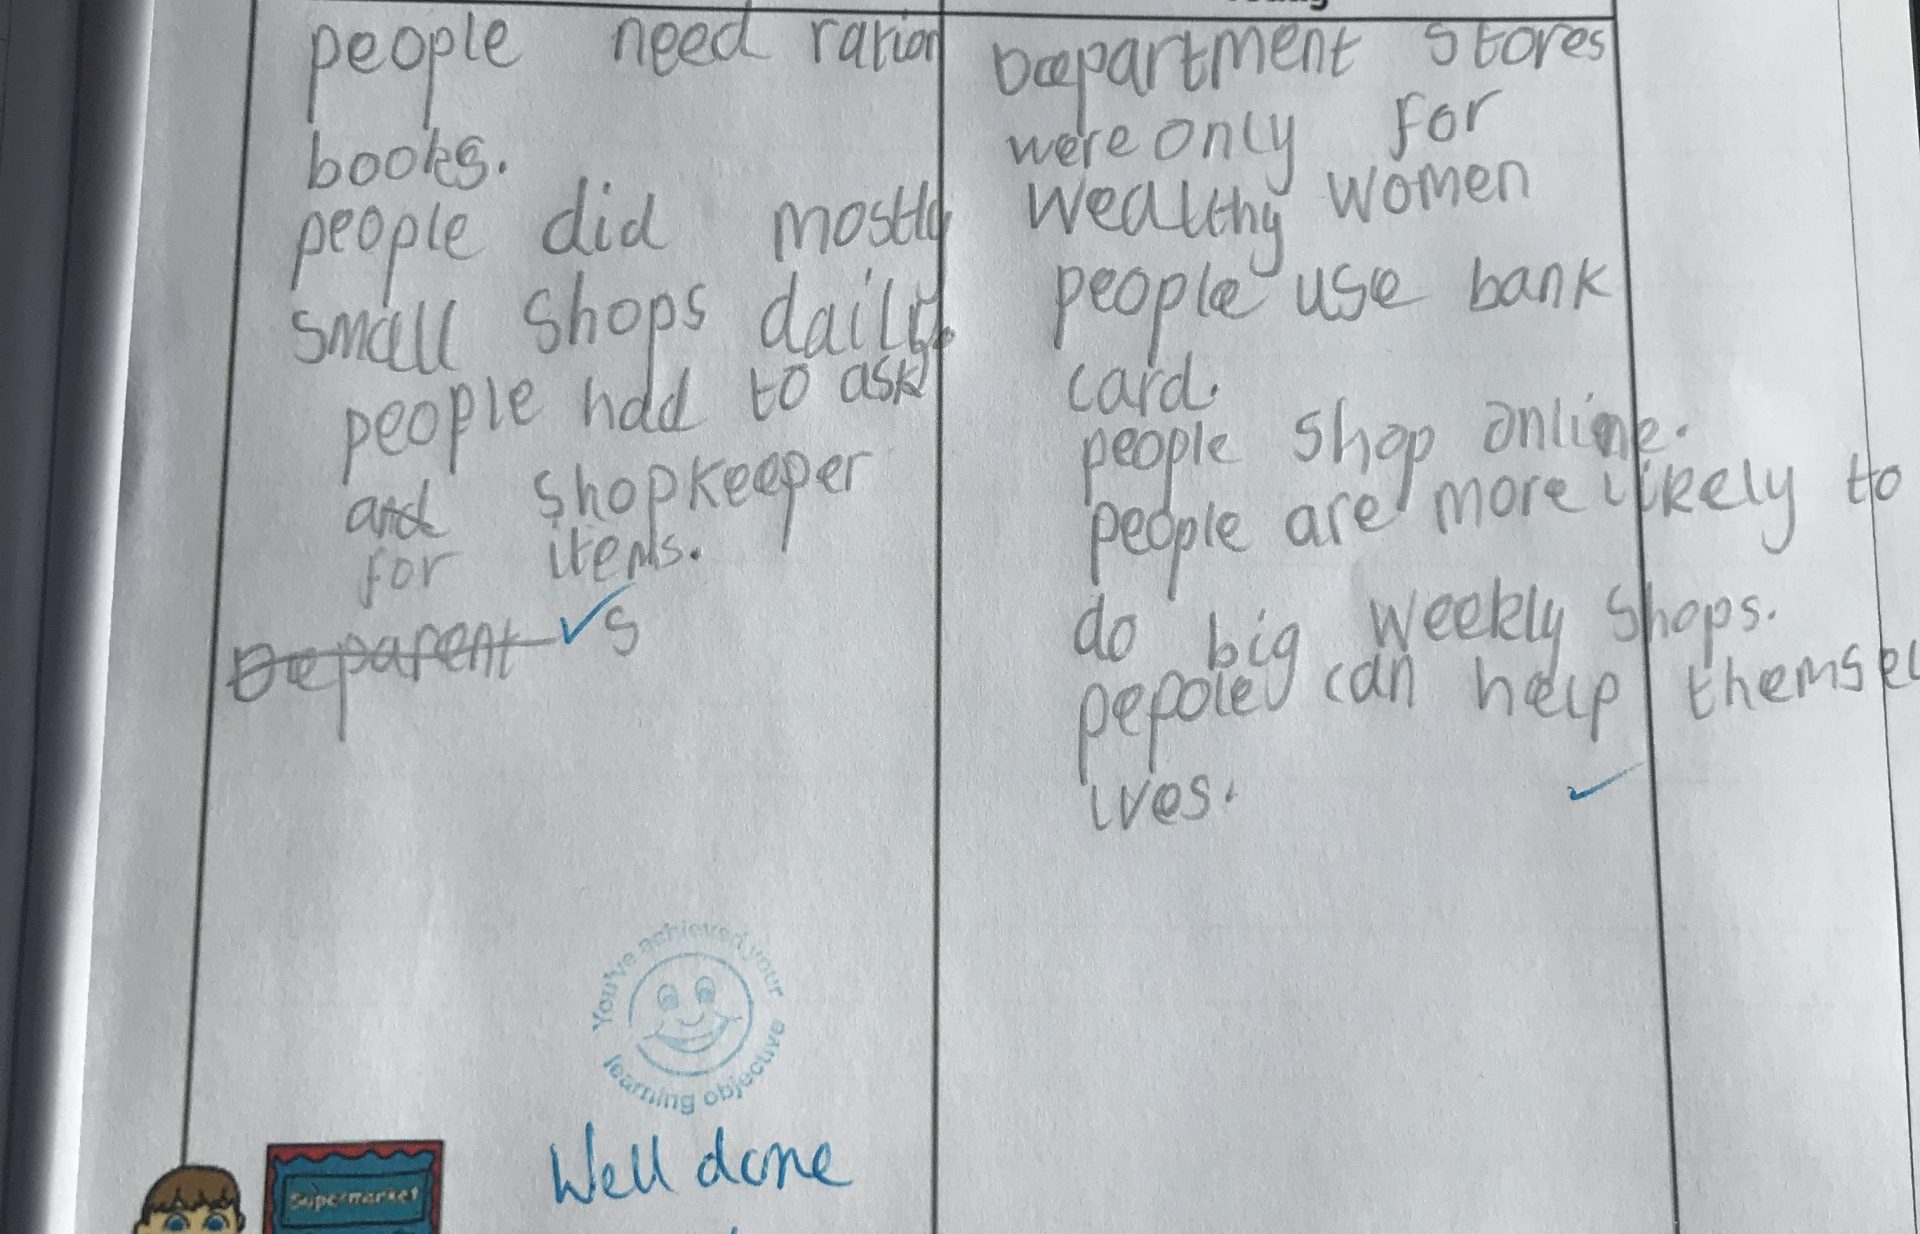 people need ration
books.
people did mostly
small shops daily.
people had to ask
and shopkeeper
for items.
Deparent s
Department stores
were only for
wealthy women
people use bank
card.
people shop online.
people are more likely to
do big weekly shops.
pepole can help themsel
ves.
You've achieved your
learning objective
Well done
Supermarket